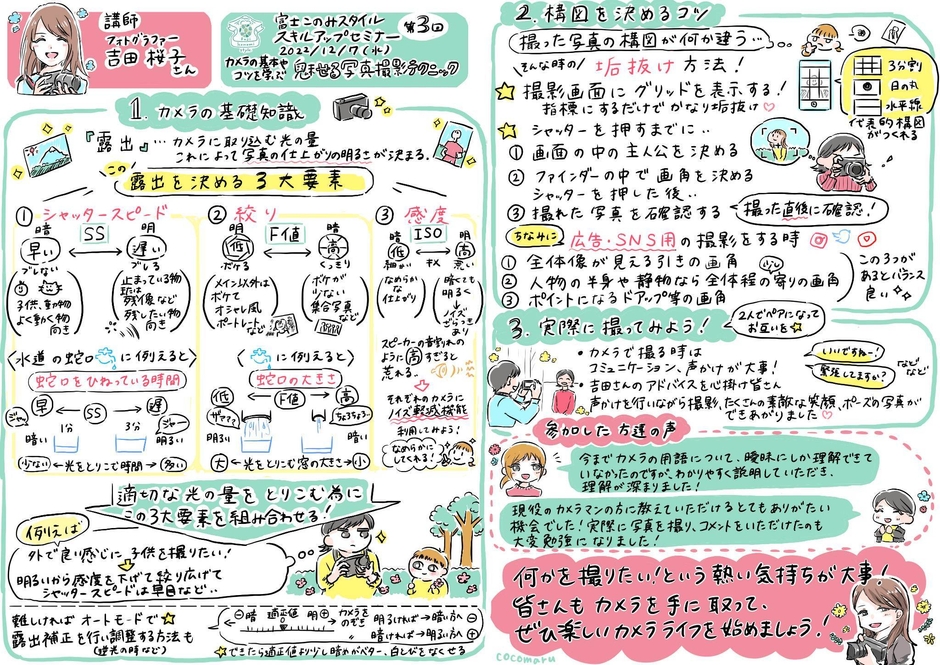 講師
フォトグラファー
吉田 桜子さん
富士このみスタイル
スキルアップセミナー
第3回
2022/12/7(水)
カメラの基本や
コツを学ぶ
魅せる写真撮影テクニック
1. カメラの基礎知識
『露出』…カメラに取り込む光の量
これによって写真の仕上がりの明るさが決まる.
この
露出を決める3大要素
① シャッタースピード
暗 明
早い SS 遅い
ブレない ブレる
子供、動物
よく動く物
向き
止まっている物
又は
残像など
残したい物
向き
〈水道の蛇口に例えると〉
蛇口をひねっている時間
早 SS 遅
ジャッ 1分 3分 ジャー
暗い 明るい
少ない ←光をとりこむ時間→ 多い
② 絞り
明 暗
低 F値 高
ボケる くっきり
メイン以外は
ボケて
オシャレ風
ポートレートなど
ボケが
少ない
集合写真
など
に例えると〉
蛇口の大きさ
低 F値 高
ザアアア ちょろちょろ…
明るい 暗い
大 ←光をとりこむ窓の大きさ→ 小
③ 感度
ISO
暗 明
低 高
細かい キメ 荒い
なめらかな
仕上がり
暗くても
明るく
ノイズ
ざらつき
あり
スピーカーの音割れの
ように高すぎると
荒れる.
それぞれのカメラに
ノイズ軽減機能
利用してみよう!
なめらかに
してくれる!
適切な光の量を とりこむ為に
この3大要素を組み合わせる!
例えば
外で良い感じに子供を撮りたい!
明るいから感度を下げて絞り広げて
シャッタースピードは早目など..
難しければ オートモードで★
露出補正を行い調整する方法も
(逆光の時など)
⊖暗 適正値 明⊕
カメラを
のぞき
明るければ→暗い方へ⊖
暗ければ→明るい方へ⊕
★できたら適正値より少し暗めがベター、白とびをなくせる
2. 構図を決めるコツ
撮った写真の構図が何か違う…
そんな時の
垢抜け方法!
★ 撮影画面にグリッドを表示する!
指標にするだけでかなり垢抜け♡
3分割
日の丸
水平線
代表的構図
がつくれる
★ シャッターを押すまでに..
① 画面の中の主人公を決める
② ファインダーの中で画角を決める
シャッターを押した後..
③ 撮れた写真を確認する
撮った直後に確認!
ちなみに
広告・SNS用の撮影をする時
① 全体像が見える引きの画角
② 人物の半身や静物なら全体程の寄りの画角
③ ポイントになるドアップ等の画角
この3つが
あるとバランス
良い
3. 実際に撮ってみよう!
2人でペアになって
お互いを★
・カメラで撮る時は
コミュニケーション、声かけが大事!
いいですねー!
緊張してますか?
などなど
・吉田さんのアドバイスを心掛け皆さん
声かけを行いながら撮影、たくさんの素敵な笑顔、ポーズの写真が
できあがりました♡
参加した方達の声
今までカメラの用語について、曖昧にしか理解できて
いなかったのですが、わかりやすく説明していただき、
理解が深まりました!
現役のカメラマンの方に教えていただけるとてもありがたい
機会でした!実際に写真を撮り、コメントをいただけたのも
大変勉強になりました!
何かを撮りたい!という熱い気持ちが大事!
皆さんも カメラを手に取って、
ぜひ楽しいカメラライフを始めましょう!
cocomaru